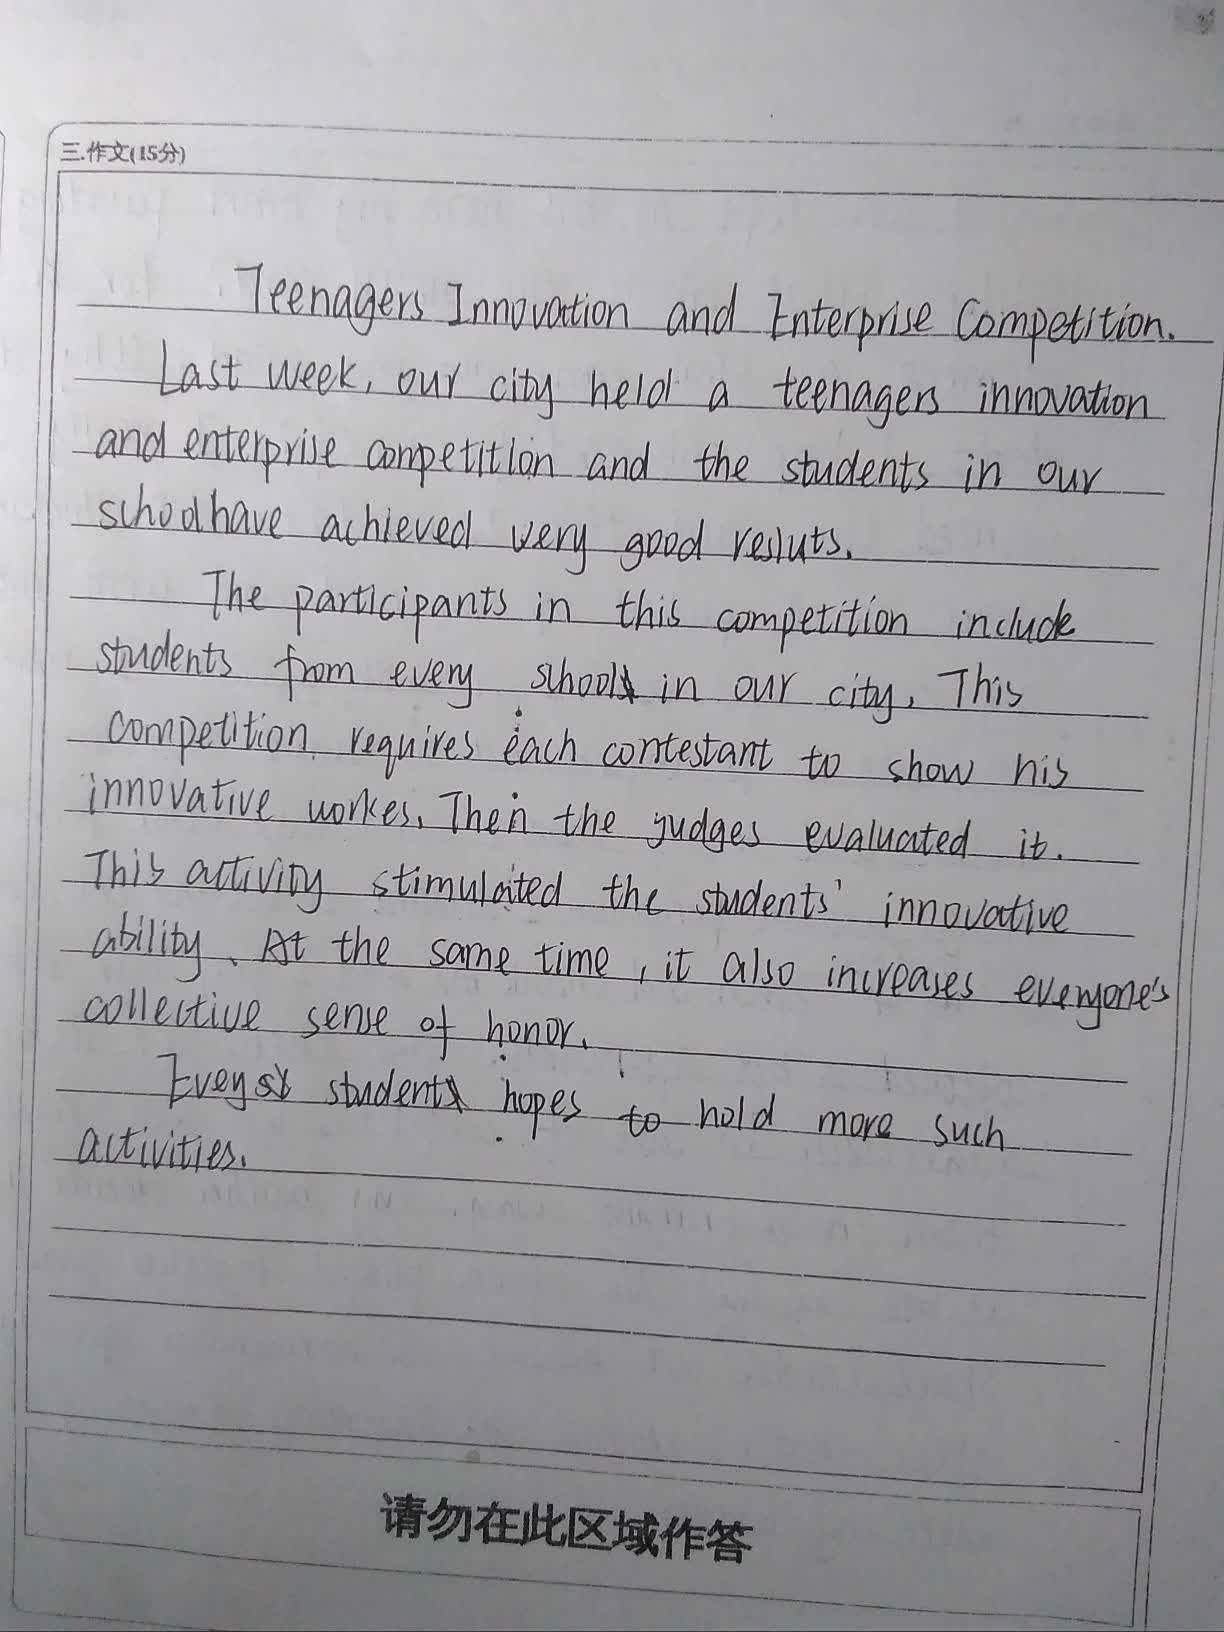 三.作文(15分)
Teenagers Innovation and Enterprise Competition.
Last week, our city held a teenagers innovation
and enterprise conpetition and the students in our
school have achieved very good resluts.
The participants in this competition include
students from every school in our city, This
competition requires each contestant to show his
innovative workes. Then the judges evaluated it.
This activity stimulated the students' innovative
ability. At the same time, it also increases everyone's
collective sense of honor.
Evey student hopes to hold more such
activities.
请勿在此区域作答